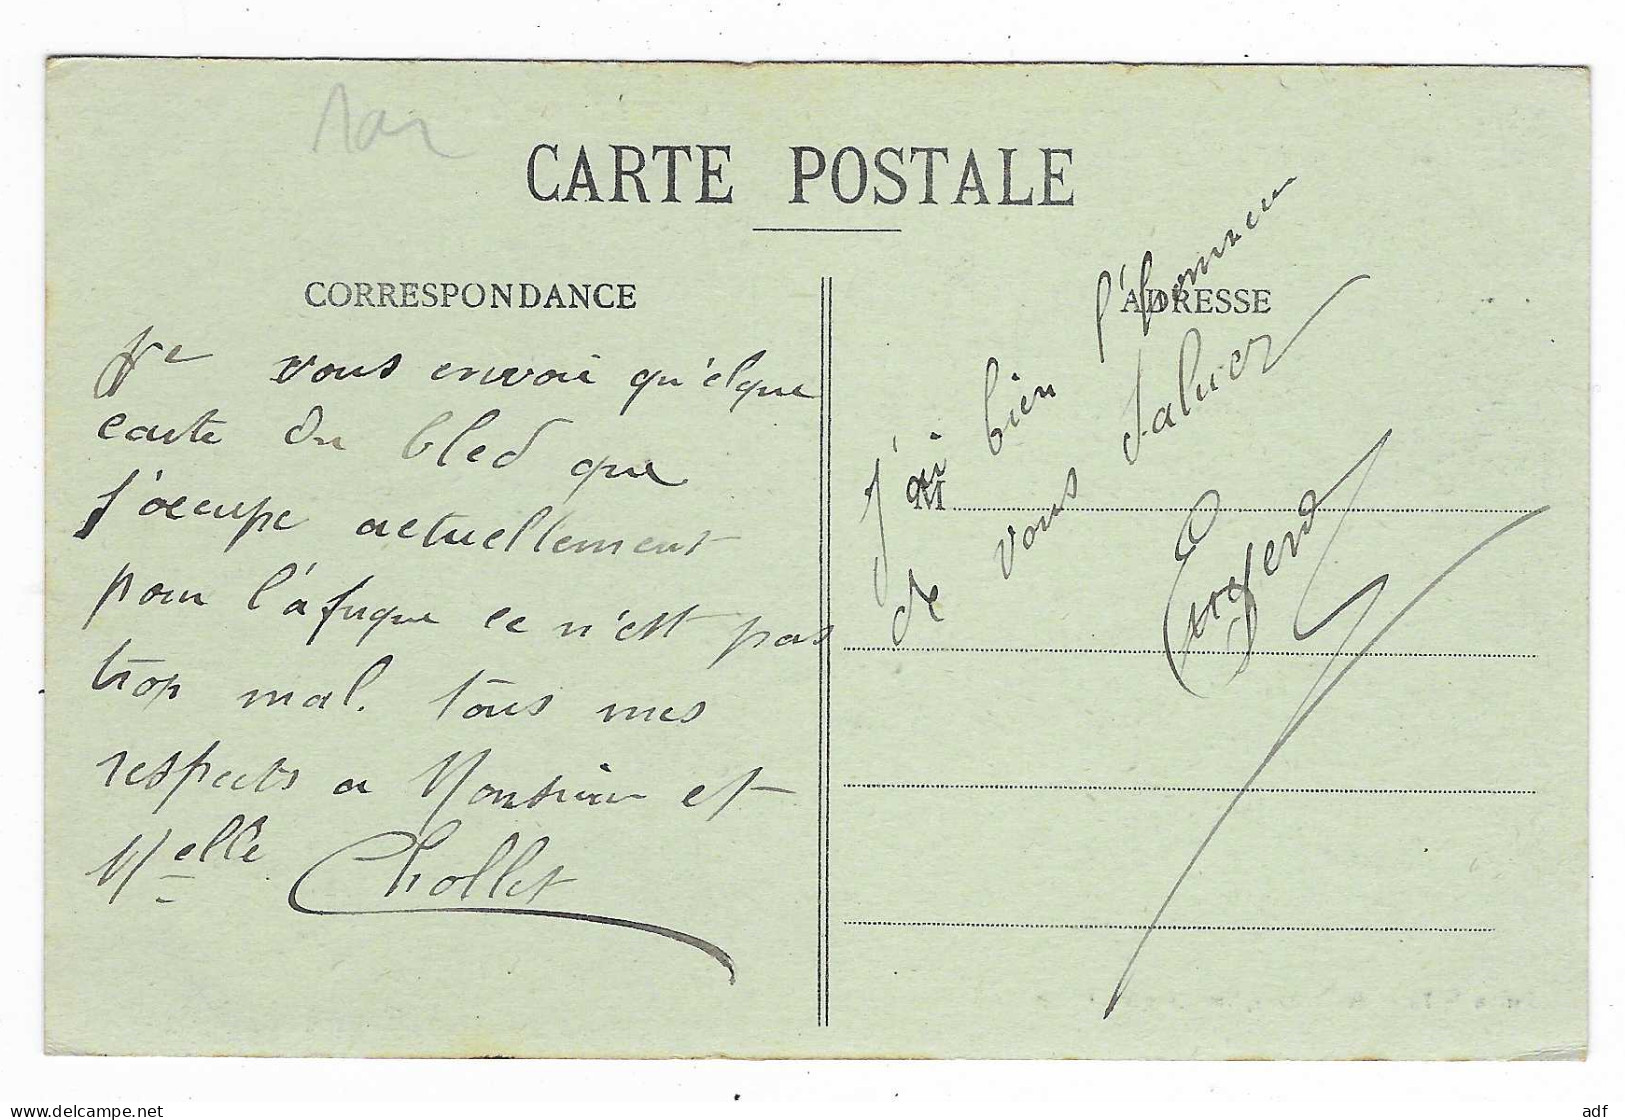 CARTE POSTALE
CORRESPONDANCE
Je vous envoie qu'élque
carte du bled que
j'occupe actuellement
pour l'afrique ce n'est pas
trop mal. tous mes
respects a Monsieur et
Melle Chollet
ADRESSE
M
J'ai bien l'honneur
de vous saluer
delcampe.net
adf